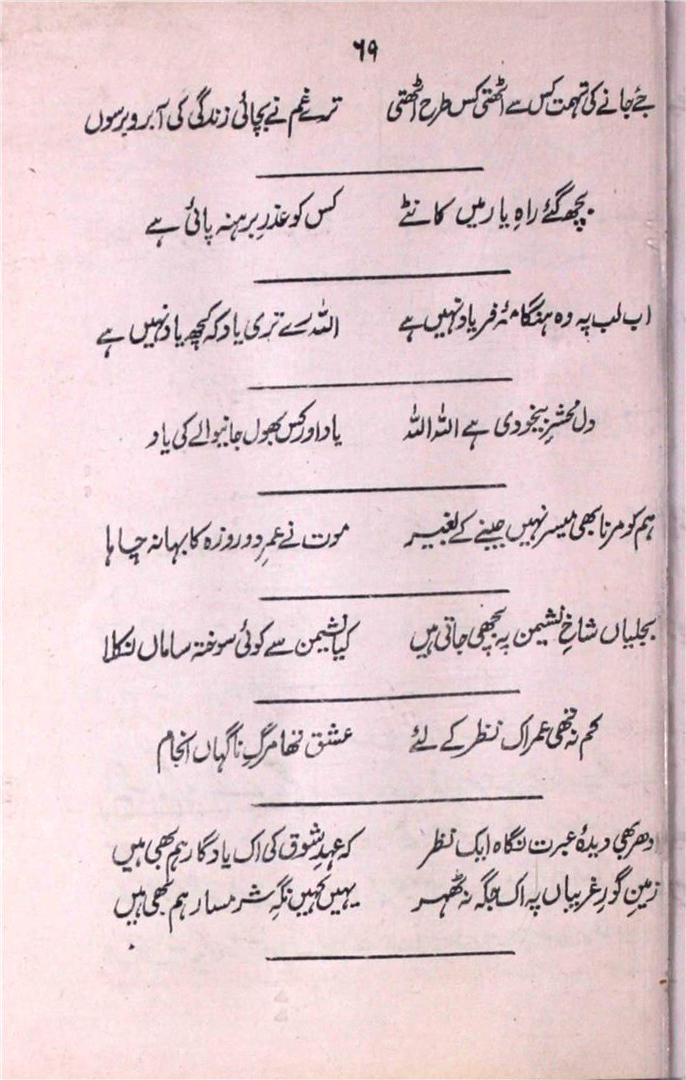 ۶۹
جئے جانے کی تہمت کس سے اٹھتی کس طرح اٹھتی ترے غم نے بچائی زندگی کی آبرو برسوں
بچھ گئے راہِ یار میں کانٹے کس کو عذرِ برہنہ پائی ہے
اب لب پہ وہ ہنگامۂ فریاد نہیں ہے اللہ رے تری یاد کہ کچھ یاد نہیں ہے
دل محشرِ بیخودی ہے اللہ اللہ یاد اور کس بھول جانیوالے کی یاد
ہم کو مرنا بھی میسر نہیں جینے کے بغیر موت نے عمرِ دو روزہ کا بہانہ چاہا
بجلیاں شاخِ نشیمن پہ بچھی جاتی ہیں کیا نشیمن سے کوئی سوختہ ساماں نکلا
کم نہ تھی عمر اک نظر کے لئے عشق تھا مرگِ ناگہاں انجام
ادھر بھی دیدۂ عبرت نگاہ ایک نظر کہ عہدِ شوق کی اک یادگار ہم بھی ہیں
زمینِ گورِ غریباں پہ اک جگہ نہ ٹھہر یہیں کہیں نگہِ شرمسار ہم بھی ہیں